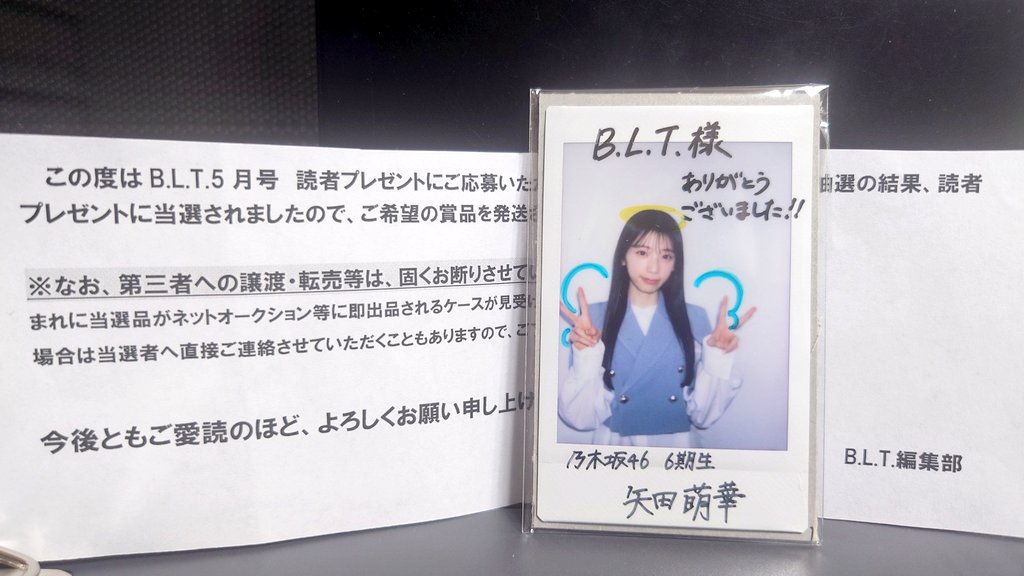 この度は B.L.T.5 月号 読者プレゼントにご応募いた
抽選の結果、読者
プレゼントに当選されましたので、ご希望の賞品を発送
※なお、第三者への譲渡・転売等は、固くお断りさせて
まれに当選品がネットオークション等に即出品されるケースが見受け
場合は当選者へ直接ご連絡させていただくこともありますので、ご
今後ともご愛読のほど、よろしくお願い申し上げ
B.L.T.編集部
B.L.T.様
ありがとう
ございました!!
乃木坂46 6期生
矢田萌華